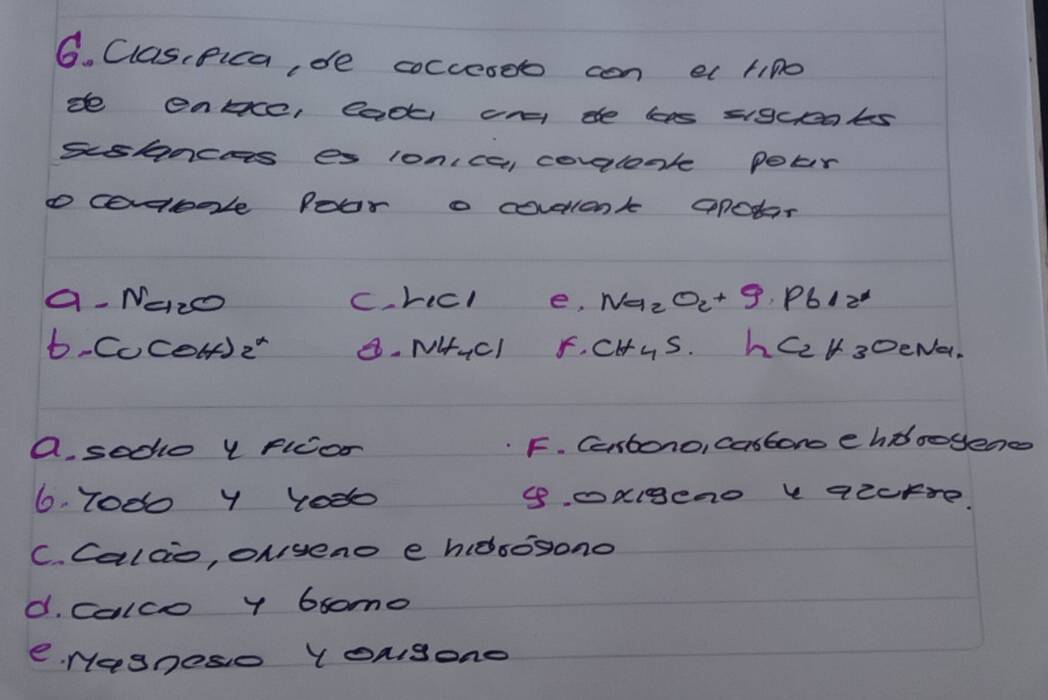 6. Clasifica, de accuerdo con el tipo
de enlace, cada una de las siguientes
sustancias es ionica, covalente polar
o covalente Polar o covalente apolar
a - Na2O c. LiCl e. Na2O2+ g. PbI2+
b - Cu(OH)2+ d. NH4Cl f. CH4S. h C2H3O2Na.
a. sodio y Flúor . F. Carbono, carbono e hidrogeno
b. Yodo y yodo g. oxigeno y azufre.
c. Calcio, oxigeno e hidrógeno
d. calcio y bromo
e. Magnesio y oxigeno